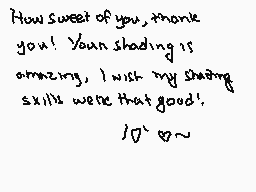 How sweet of you, thank
you! Your shading is
amazing, I wish my shading
skills were that good!